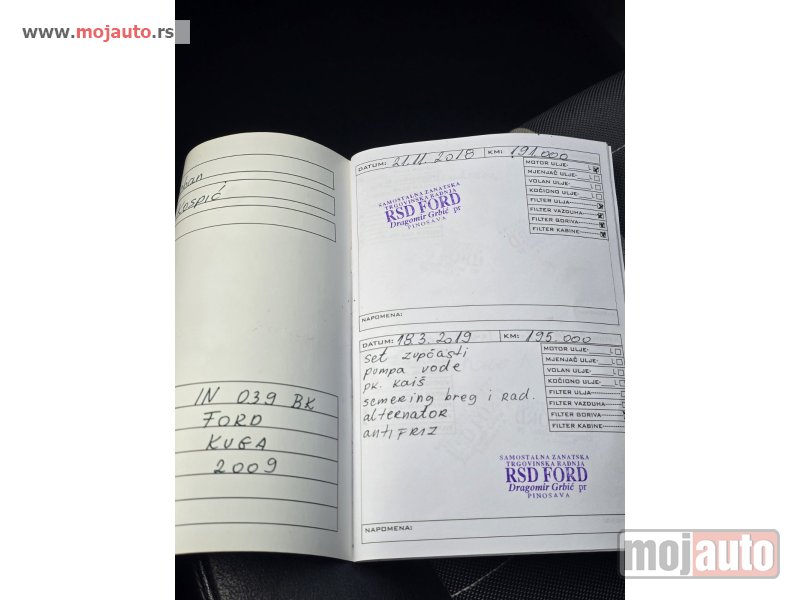 www.mojauto.rs
Kospić
IN 039 BK
FORD
KUGA
2009
DATUM: 21.11.2018 KM: 191.000
MOTOR ULJE
MJENJAČ ULJE
VOLAN ULJE
KOČIONO ULJE
FILTER ULJA
FILTER VAZDUHA
FILTER GORIVA
FILTER KABINE
SAMOSTALNA ZANATSKA
TRGOVINSKA RADNJA
RSD FORD
Dragomir Grbić pr
PINOSAVA
NAPOMENA:
DATUM: 18.3.2019 KM: 195.000
MOTOR ULJE
MJENJAČ ULJE
VOLAN ULJE
KOČIONO ULJE
FILTER ULJA
FILTER VAZDUHA
FILTER GORIVA
FILTER KABINE
set zupčasti
pumpa vode
pk. kaiš
semering breg i rad.
alternator
antiFRIZ
SAMOSTALNA ZANATSKA
TRGOVINSKA RADNJA
RSD FORD
Dragomir Grbić pr
PINOSAVA
NAPOMENA:
mojauto